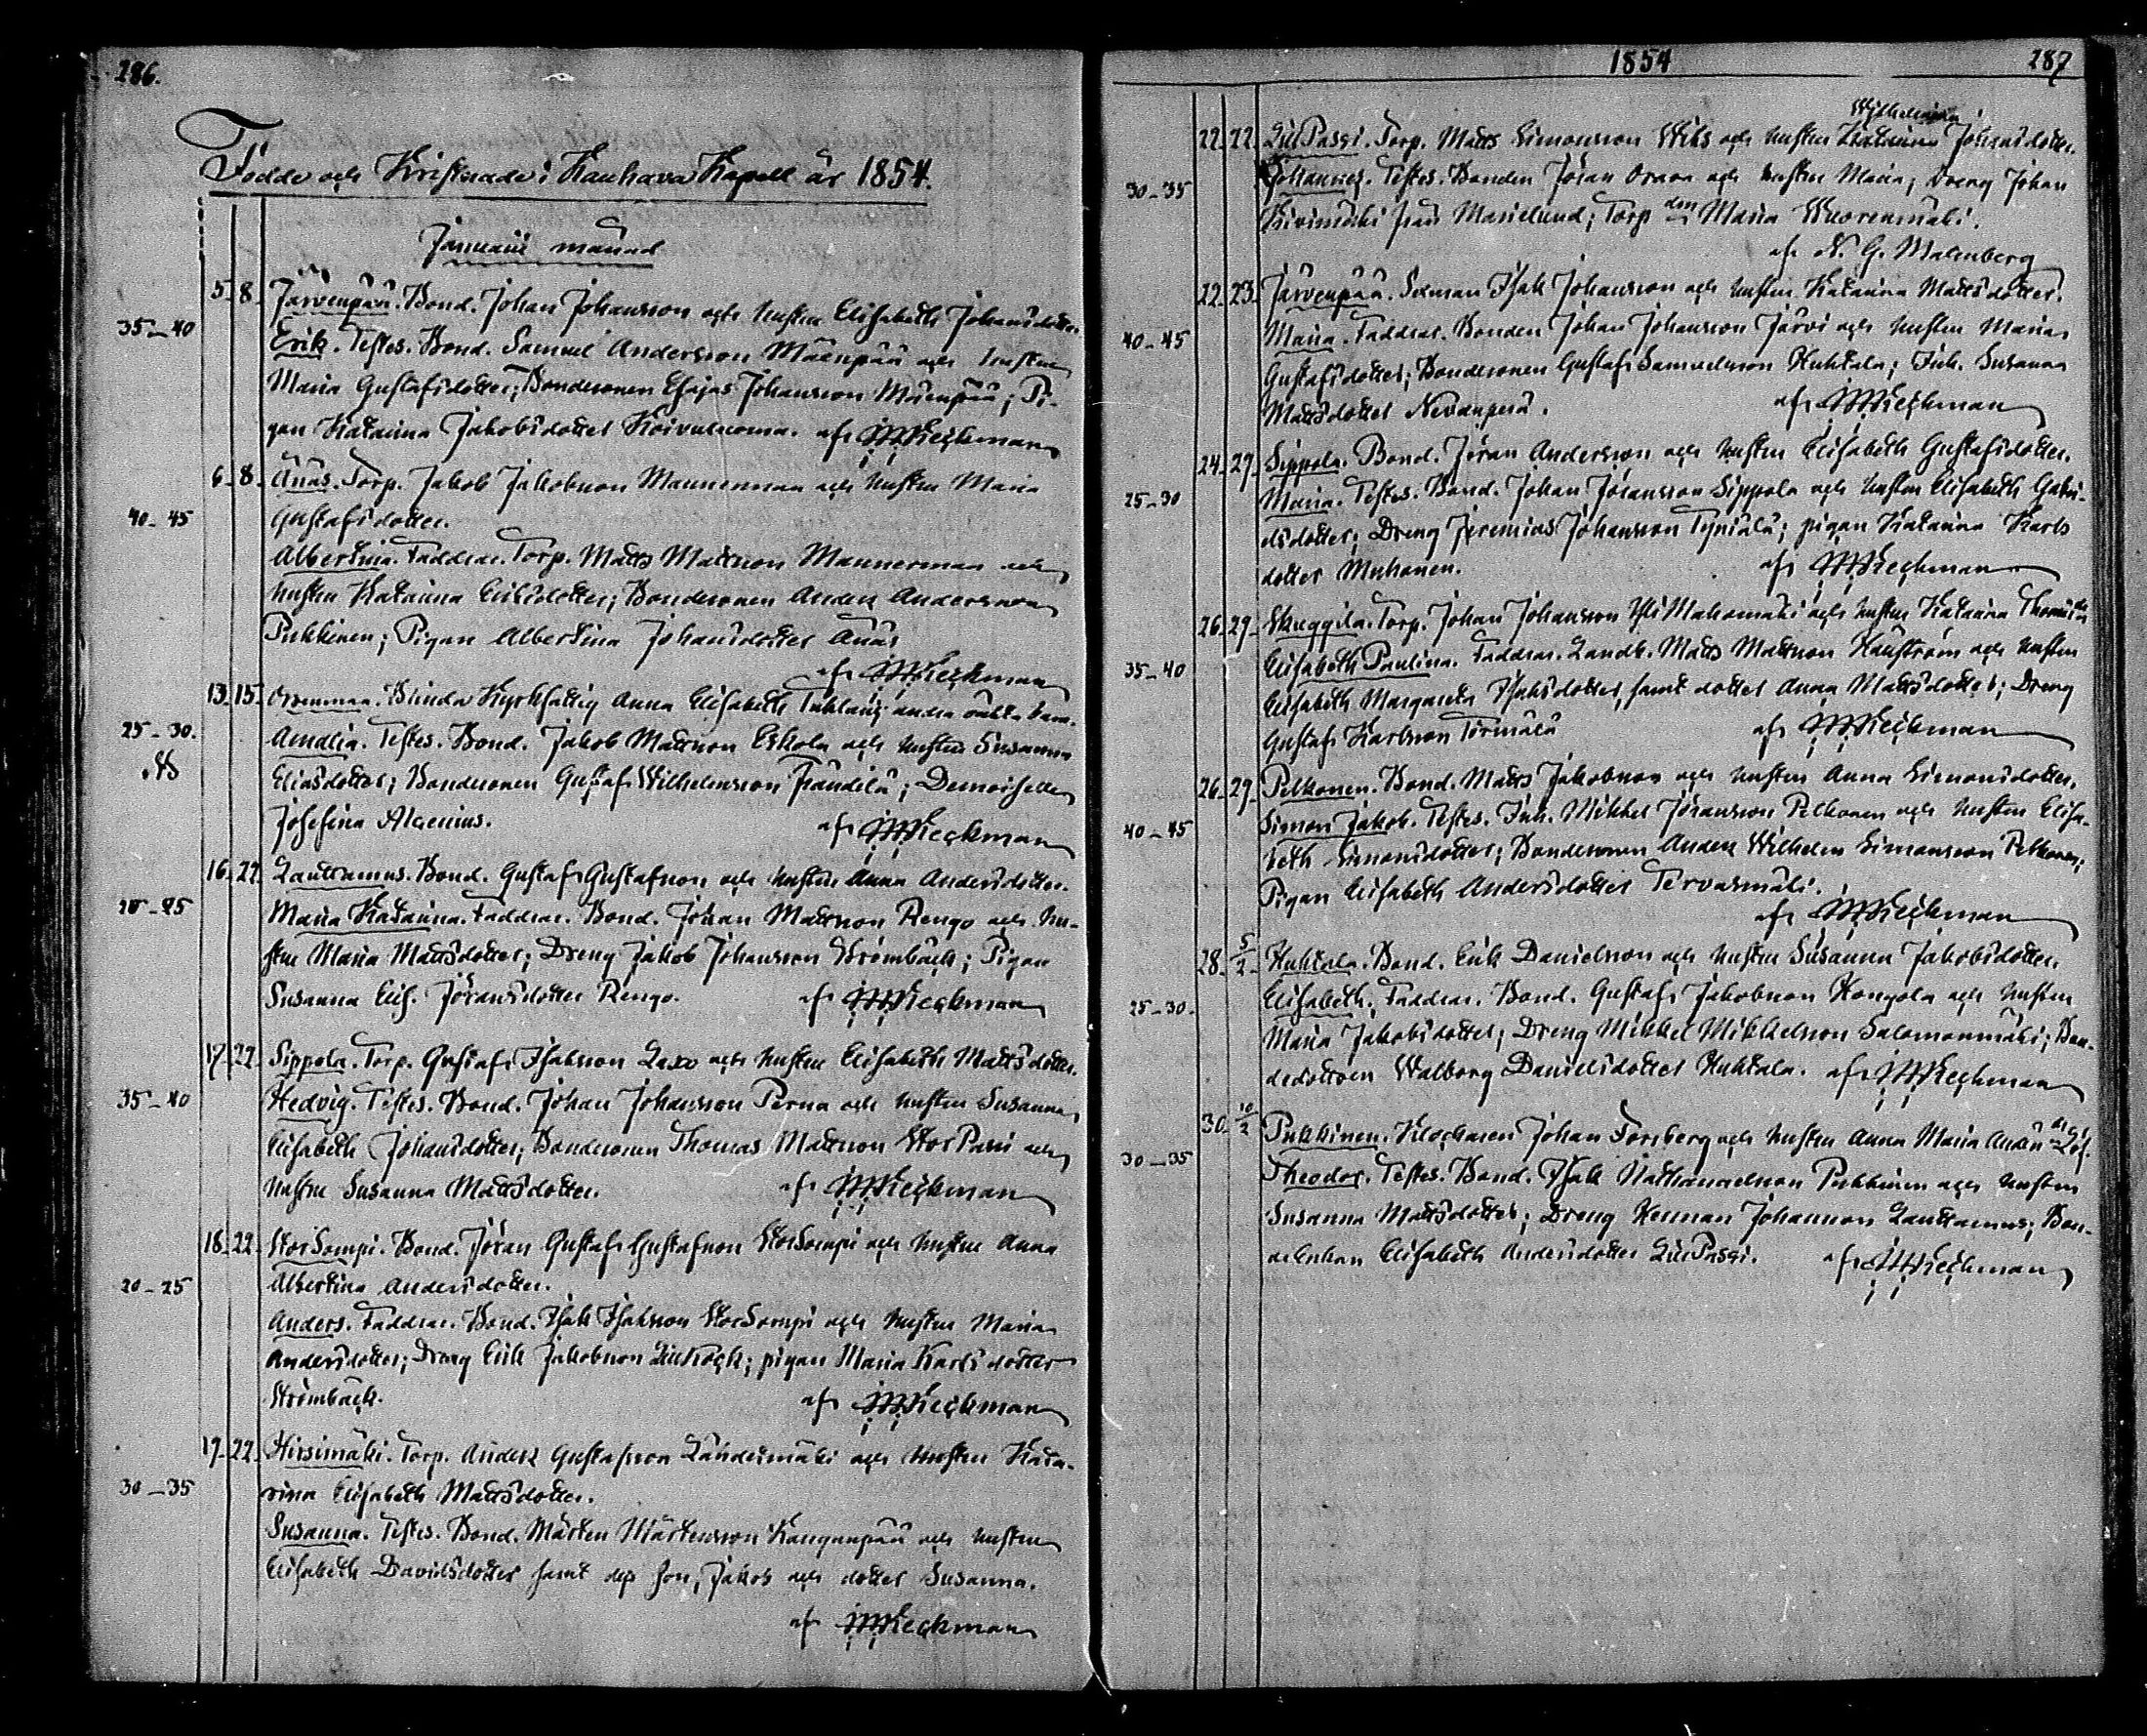 286.
Födde och Kristnade i Kauhava Kapell år 1854.
Januarii månad
5. 8. Järvenpää. Bond. Johan Johansson och hustru Elisabeth Johansdotter.
35-40 Erik. Testes. Bond. Samuel Andersson Mäenpää och hustru
Maria Gustafsdotter; Bondesonen Esajas Johansson Mäenpää; Pi-
gan Katarina Jakobsdotter Koivuluoma. af Heckman
6. 8. Änäs. Torp. Jakob Jakobsson Mannerman och hustru Maria
40-45 Gustafsdotter.
Albertina. Faddrar. Torp. Matts Mattsson Mannerman och
hustru Katarina Eriksdotter; Bondesonen Anders Andersson
Pukkinen; Pigan Albertina Johansdotter Änäs
af Heckman
13. 15. Blinda Kyrkhattig Anna Elisabeth andra oäkta barn.
25-30. Amalia. Testes. Bond. Jakob Mattsson Eskola och hustru Susanna
Eliasdotter; Bondesonen Gustaf Wilhelmsson Frändilä; Demoiselle
Josefina Alcenius. af Heckman
16. 22. Lauttamus. Bond. Gustaf Gustafsson och hustru Anna Andersdotter.
20-25 Maria Katarina. Faddrar. Bond. Johan Mattsson Rengo och hu-
stru Maria Mattsdotter; Dreng Jakob Johansson Strömbäck; Pigan
Susanna Elis. Jöransdotter Rengo. af Heckman
17. 22. Sippola. Torp. Gustaf Isaksson Laxo och hustru Elisabeth Mattsdotter.
35-40 Hedvig. Testes. Bond. Johan Johansson Perna och hustru Susanna
Elisabeth Johansdotter; Bondesonen Thomas Mattsson StorPassi och
hustru Susanna Mattsdotter. af Heckman
18. 22. StorSompi. Bond. Jöran Gustaf Gustafsson StorSompi och hustru Anna
20-25 Albertina Andersdotter.
Anders. Faddrar. Bond. Isak Isaksson StorSompi och hustru Maria
Andersdotter; Dreng Erik Jakobsson; pigan Maria Karlsdotter
Strömbäck. af Heckman
17. 22. Hirsimäki. Torp. Anders Gustafsson Ländesmäki och hustru Kata-
30-35 rina Elisabeth Mattsdotter.
Susanna. Testes. Bond. Mårten Mårtensson Kanganpää och hustru
Elisabeth Davidsdotter samt des son, Jakob och dotter Susanna.
af Heckman
1854 287
Wilhelmina
22. 22. LillPassi. Torp. Matts Simonsson Wiks och hustru Katarina Johansdotter.
30-35 Johannes. Testes. Bonden Jöran Orava och hustru Maria; Dreng Johan
Kivimäki från Marielund; Torp. dtr Maria Wuorenmäki.
af N. G. Malmberg
22. 23. Järvenpää. Sexman Isak Johansson och hustru Katarina Mattsdotter.
40-45 Maria. Faddrar. Bonden Johan Johansson Järvi och hustru Maria
Gustafsdotter; Bondesonen Gustaf Samuelsson Huhtala; Inh. Susanna
Mattsdotter Nevanperä. af Heckman
24. 29. Sippola. Bond. Jöran Andersson och hustru Elisabeth Gustafsdotter.
25-30 Maria. Testes. Bond. Johan Jöransson Sippola och hustru Elisabeth Gabri-
elsdotter; Dreng Jeremias Johansson Tyniälä; pigan Katarina Karls
dotter Muhonen. af Heckman
26. 29. Skuggila. Torp. Johan Johansson Yli Mahomäki och hustru Katarina Thomasdr
35-40 Elisabeth Paulina. Faddrar. Landb. Matts Mattsson Hauström och hustru
Elisabeth Margareta Isaksdotter, samt dotter Anna Mattsdotter; Dreng
Gustaf Karlsson Törmälä af Heckman
26. 29. Pelkonen. Bond. Matts Jakobsson och hustru Anna Simonsdotter.
40-45 Simon Jakob. Testes. Inh. Mikkel Jöransson Pelkonen och hustru Elisa-
beth Simonsdotter; Bondesonen Anders Wilhelm Simonsson Pelkonen;
Pigan Elisabeth Andersdotter Tervasmäki.
af Heckman
28. 5/2 Huhtala. Bond. Erik Danielsson och hustru Susanna Jakobsdotter.
25-30. Elisabeth. Faddrar. Bond. Gustaf Jakobsson Kongola och hustru
Maria Jakobsdotter; Dreng Mikkel Mikkelsson Salomonmäki; Bon-
dedottren Walborg Danielsdotter Huhtala. af Heckman
30. 10/2 Pukkinen. Klockaren Johan Forsberg och hustru Anna Maria
30-35 Theodor. Testes. Bond. Isak Nathanaelsson Pukkinen och hustru
Susanna Mattsdotter; Dreng Herman Johansson Lauttamus; Bon-
deenkan Elisabeth Andersdotter LillPassi. af Heckman